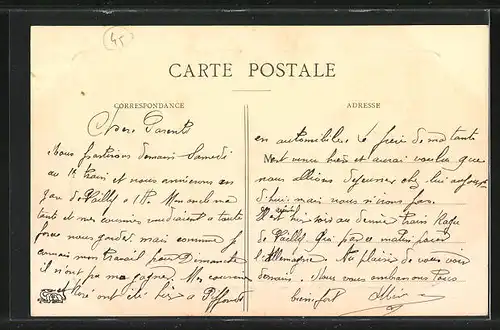 45
CARTE POSTALE
CORRESPONDANCE
ADRESSE
Chers Parents
Nous partirons demain Samedi
au 1er train et nous arriverons en
gare de Vailly à 11h. Mon oncle ma
tante et mes cousins voudraient a toute
force nous garder mais comme j
mon travail pour Dimanche
il n'ont pu me gagner. Mes cousins
et ont été hier a
en automobile. Le frère de ma tante
est venu hier et aurai voulu que
nous allions déjeuner chez lui aujourd'
d'hui mais nous n'irons pas.
est hier soir au dernier train
de Vailly qui par ce matin pour
l'Allemagne. Au plaisir de vous voir
demain. Nous vous embrassons tous
bien fort